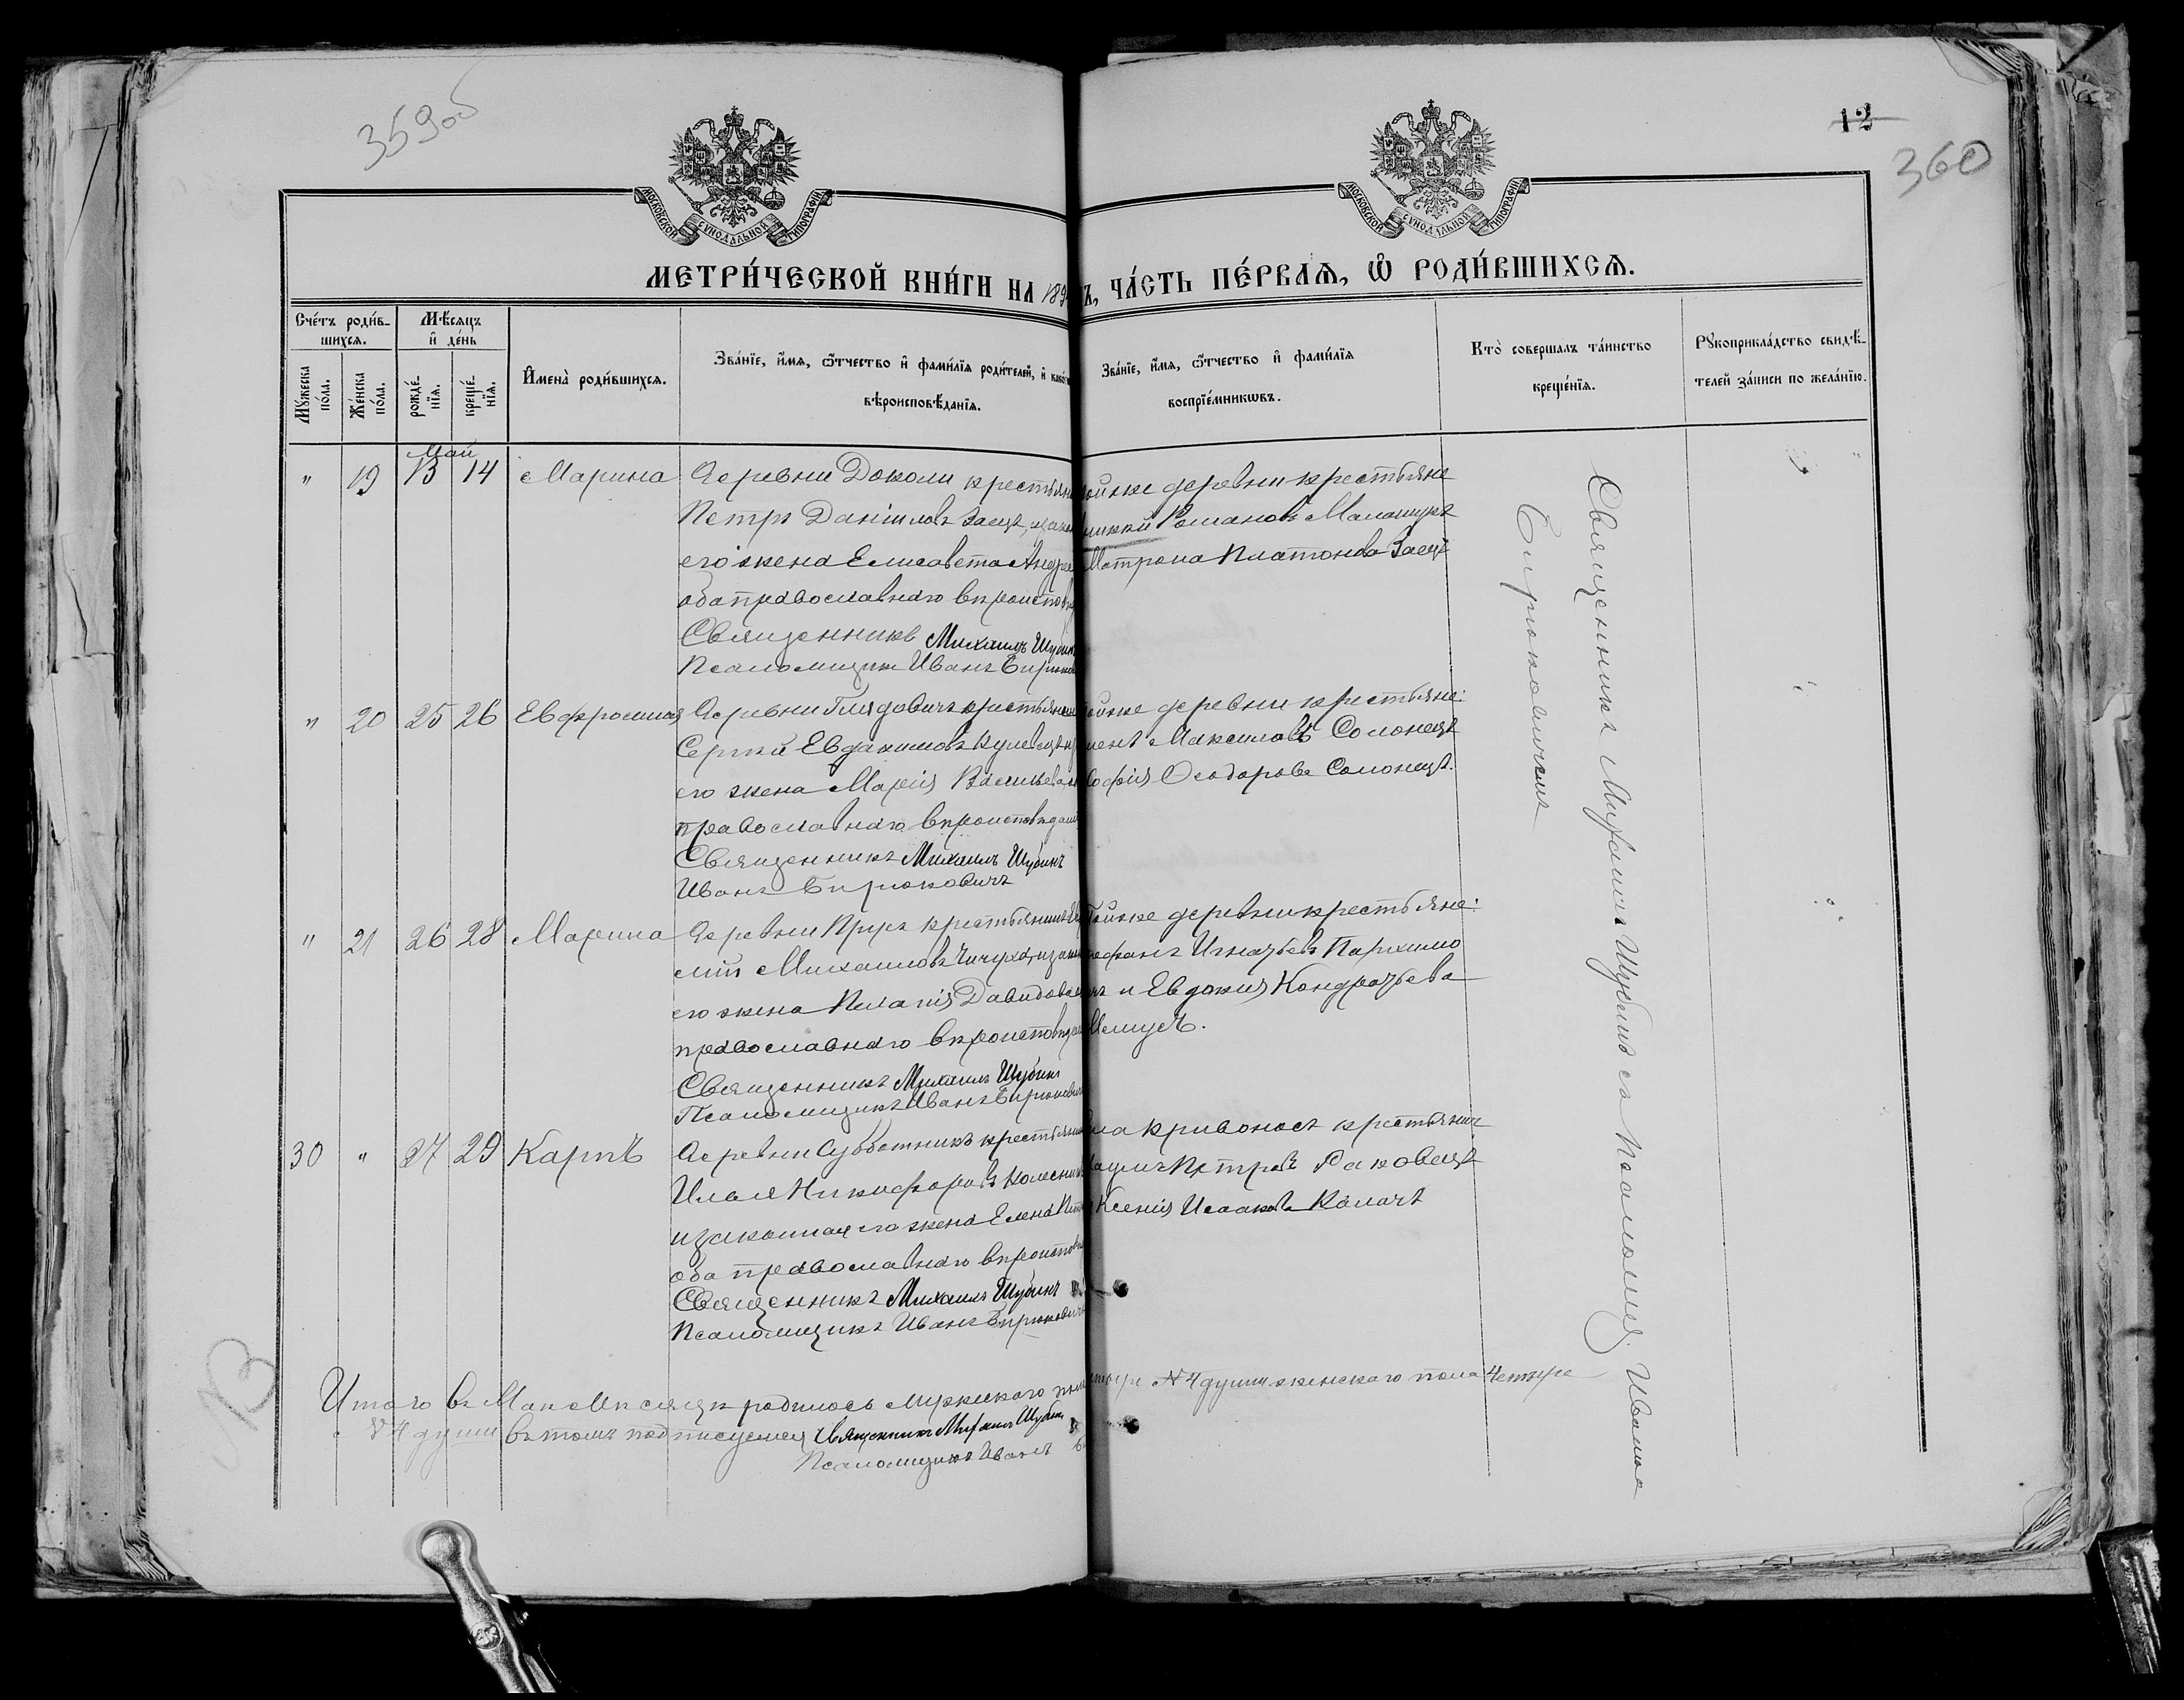 359об
12
360
МОСКОВСКОЙ СУНОДАЛЬНОЙ ТИПОГРАФІИ
МОСКОВСКОЙ СУНОДАЛЬНОЙ ТИПОГРАФІИ
МЕТРИ́ЧЕСКОЙ КНИ́ГИ НА 189 Ъ, ЧА́СТЬ ПЕ́РВАѦ, Ѿ РОДИ́ВШИХСѦ.
Сче́тъ роди́в-
шихсѧ.
Мѣ́сѧцъ
и҆ де́нь
Мꙋ́жеска
по́ла.
Же́нска
по́ла.
рожде́-
нїѧ.
креще́-
нїѧ.
И҆мена̀ роди́вшихсѧ.
Зва́нїе, и҆́мѧ, ѻ҆́тчество и҆ фами́лїѧ роди́телей, и҆ како́
вѣроисповѣ́данїѧ.
Зва́нїе, и҆́мѧ, ѻ҆́тчество и҆ фами́лїѧ
воспрїе́мникѡвъ.
Кто̀ соверша́лъ та́инство
креще́нїѧ.
Рꙋкоприкла́дство свидѣ́-
телей за́писи по жела́нїю.
Май
" 19 13 14 Марина Деревни Доколи крестьян
Петръ Даніиловъ Заецъ, и закон
его жена Елисавета Андре
оба православнаго вѣроисповѣд
Священникъ Михаилъ Шубинъ
Псаломщикъ Иванъ Бирюков
тойже деревни крестьяне
Романовъ Малащукъ
Матрона Платонова Заецъ
" 20 25 26 Евфросинія Деревни Глядовичъ крестьянин
Сергій Евдокимовъ Кулевецъ и
его жена Марія Васильева
православнаго вѣроисповѣдані
Священникъ Михаилъ Шубинъ
Иванъ Бирюковичъ
тойже деревни крестьяне:
Максимовъ Солонецъ
Софія Ѳеодорова Солонецъ.
" 21 26 28 Марина Деревни крестьянинъ
Михаиловъ и закон
его жена Давидова
православнаго вѣроисповѣдан
Священникъ Михаилъ Шубинъ
Псаломщикъ Иванъ Бирюкович
Тойже деревни крестьяне:
Игнатьевъ Пархимо
и Евдокия Кондратьева
30 " 27 29 Карпъ Деревни Субботникъ крестьянин
Илья Никифоровъ Колесник
и законная его жена Елена Пет
оба православнаго вѣроисповѣ
Священникъ Михаилъ Шубинъ
Псаломщикъ Иванъ Бирюкович
Кривоносъ крестьяне
Наумъ Петровъ Раковецъ
Ксенія Исаакова Калачъ
Священникъ Михаилъ Шубинъ съ Псаломщ. Иваномъ
Бирюковичемъ
Итого въ Маѣ Мѣсяцѣ родилось мужескаго пол
четыре № 4 души женскаго пола четыре
№ 4 души въ томъ подписуемся Священникъ Михаилъ Шубинъ
Псаломщикъ Иванъ